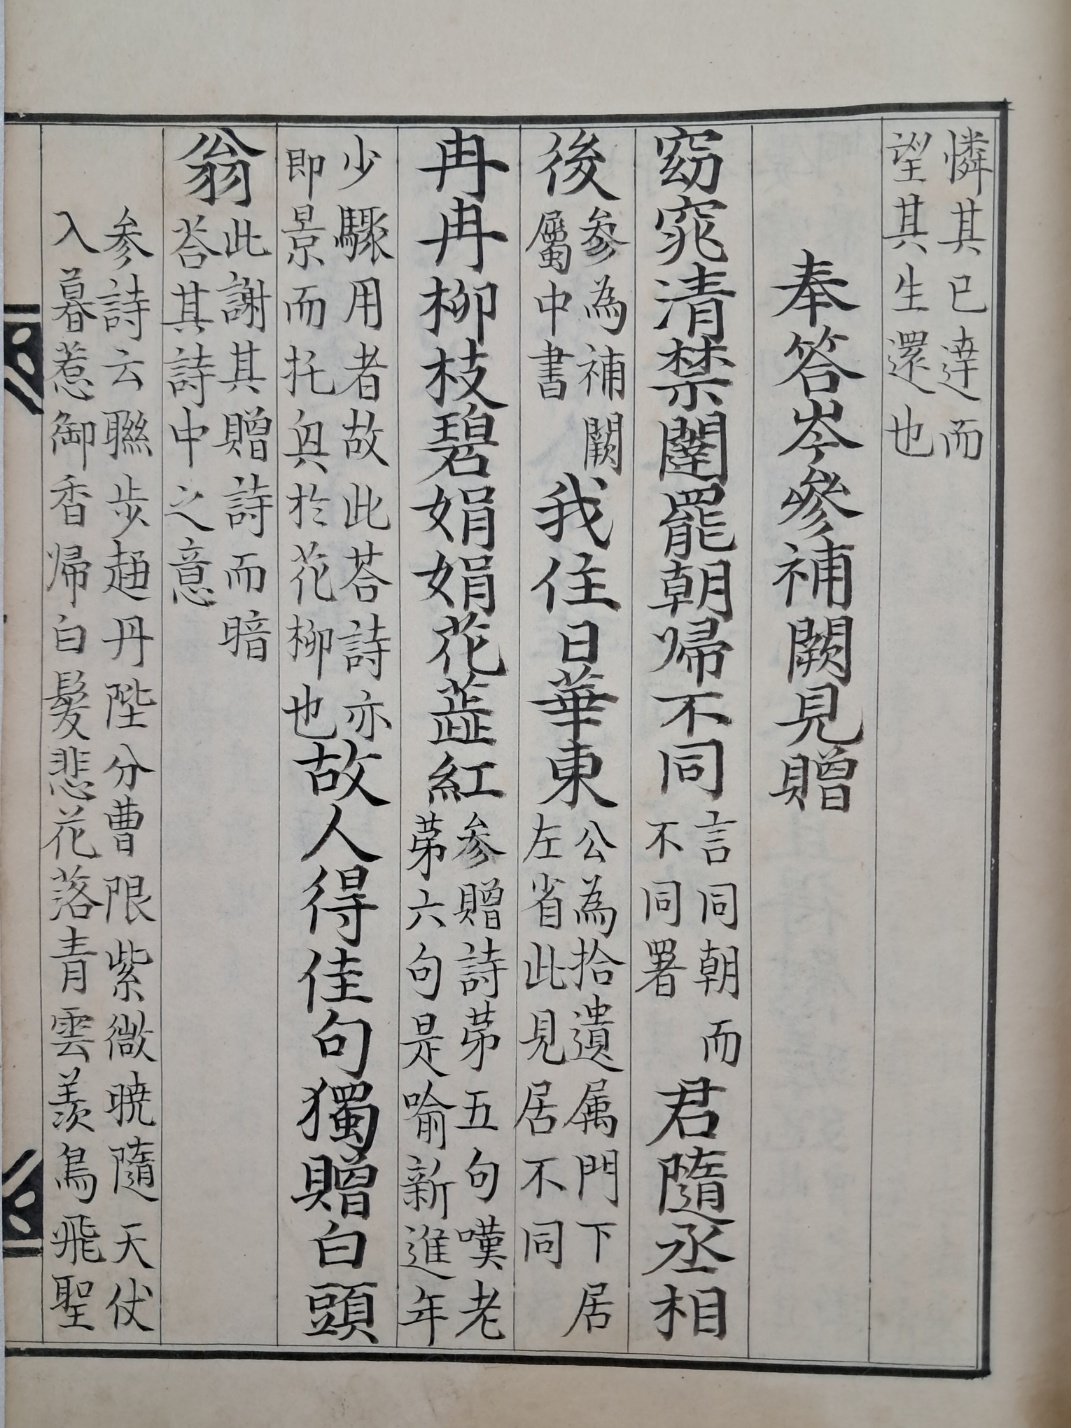 憐其已達而
望其生還也
奉答岑參補闕見贈
窈窕清禁闥罷朝歸不同
言同朝而
不同署
君隨丞相
後
参為補闕
屬中書
我住日華東
公為拾遺属門下居
左省此見居不同
冉冉柳枝碧娟娟花蘂紅
参贈詩苐五句嘆老
苐六句是喻新進年
少驟用者故此荅詩亦
即景而托興於花柳也
故人得佳句獨贈白頭
翁
此謝其贈詩而暗
荅其詩中之意
参詩云聮步趍丹陛分曹限紫微暁隨天仗
入暮惹御香歸白髮悲花落青雲羡鳥飛聖